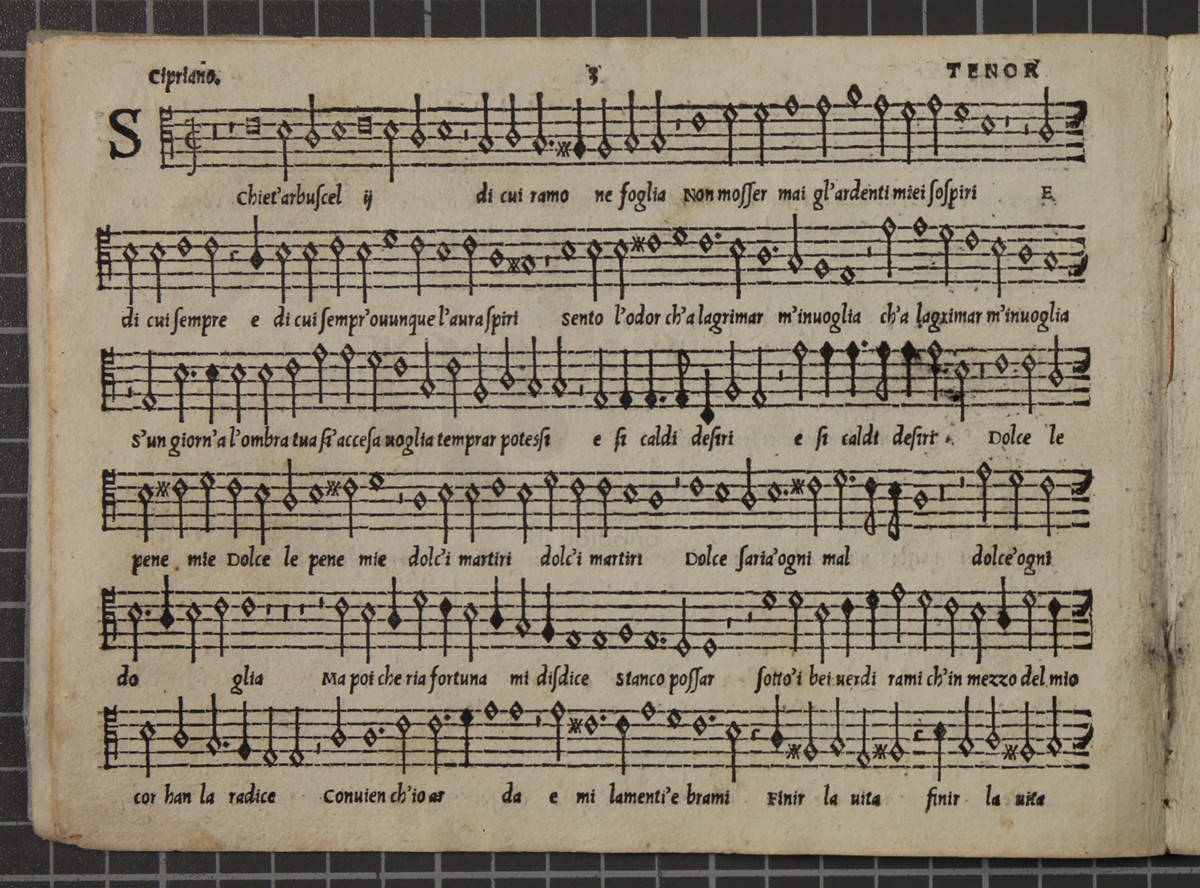 Cipriano. 3 TENOR
S
Chiet'arbuscel ij di cui ramo ne foglia Non mosser mai gl'ardenti miei sospiri E
di cui sempre e di cui sempr'ouunque l'aura spiri sento l'odor ch'a lagrimar m'inuoglia ch'a lagrimar m'inuoglia
S'un giorn'a l'ombra tua si'accesa uoglia temprar potessi e si caldi desiri e si caldi desiri Dolce le
pene mie Dolce le pene mie dolc'i martiri dolc'i martiri Dolce saria'ogni mal dolce'ogni
do glia Ma poi che ria fortuna mi disdice stanco possar sotto'i bei uerdi rami ch'in mezzo del mio
cor han la radice Conuien ch'io ar da e mi lamenti'e brami Finir la uita finir la uita